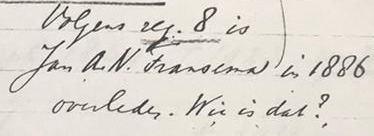 Volgens reg. 8 is
Jan A.N. Fransema in 1886
overleden. Wie is dat?